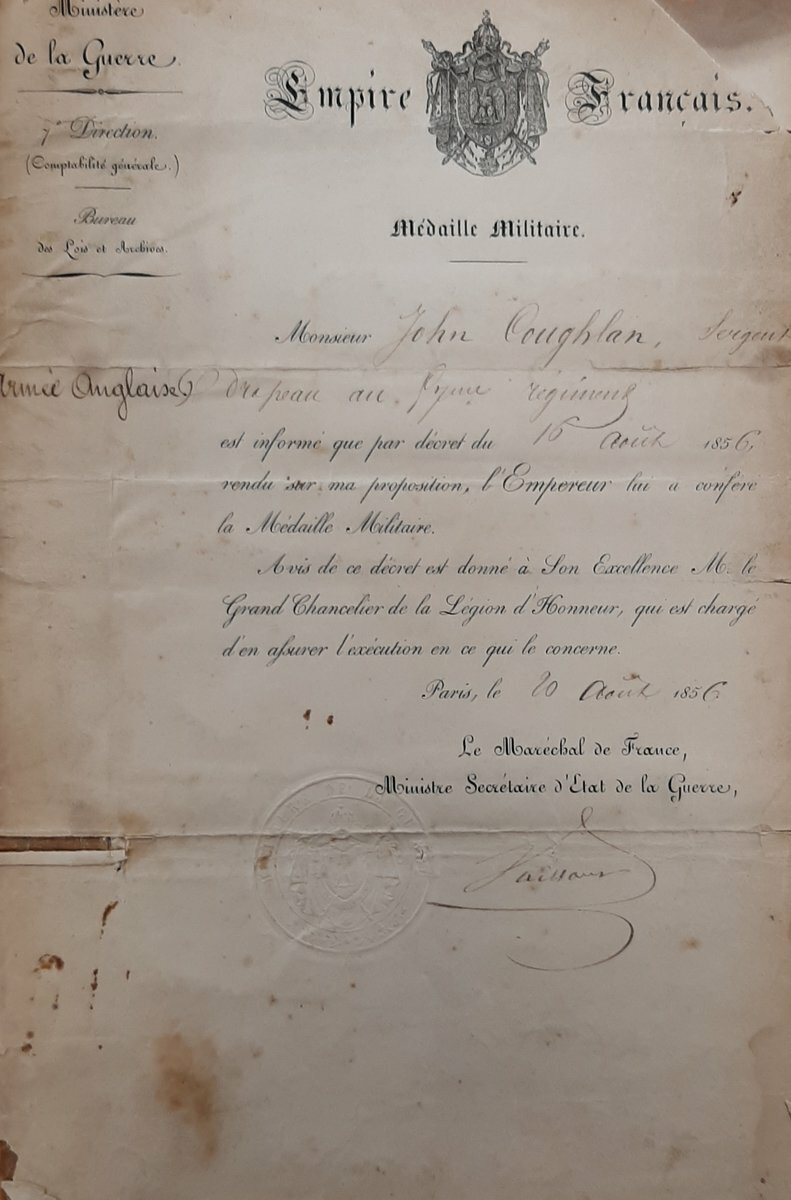 Ministère
de la Guerre.
7e Direction.
(Comptabilité générale.)
Bureau
des Lois et Archives.
Empire Français.
Médaille Militaire.
Monsieur John Coughlan, Sergent
Armée Anglaise) drapeau au régiment
est informé que par décret du 16 Août 1856,
rendu sur ma proposition, l'Empereur lui a conféré
la Médaille Militaire.
Avis de ce décret est donné à Son Excellence M. le
Grand Chancelier de la Légion d'Honneur, qui est chargé
d'en assurer l'exécution en ce qui le concerne.
Paris, le 20 Août 1856
Le Maréchal de France,
Ministre Secrétaire d'Etat de la Guerre,
Vaillant